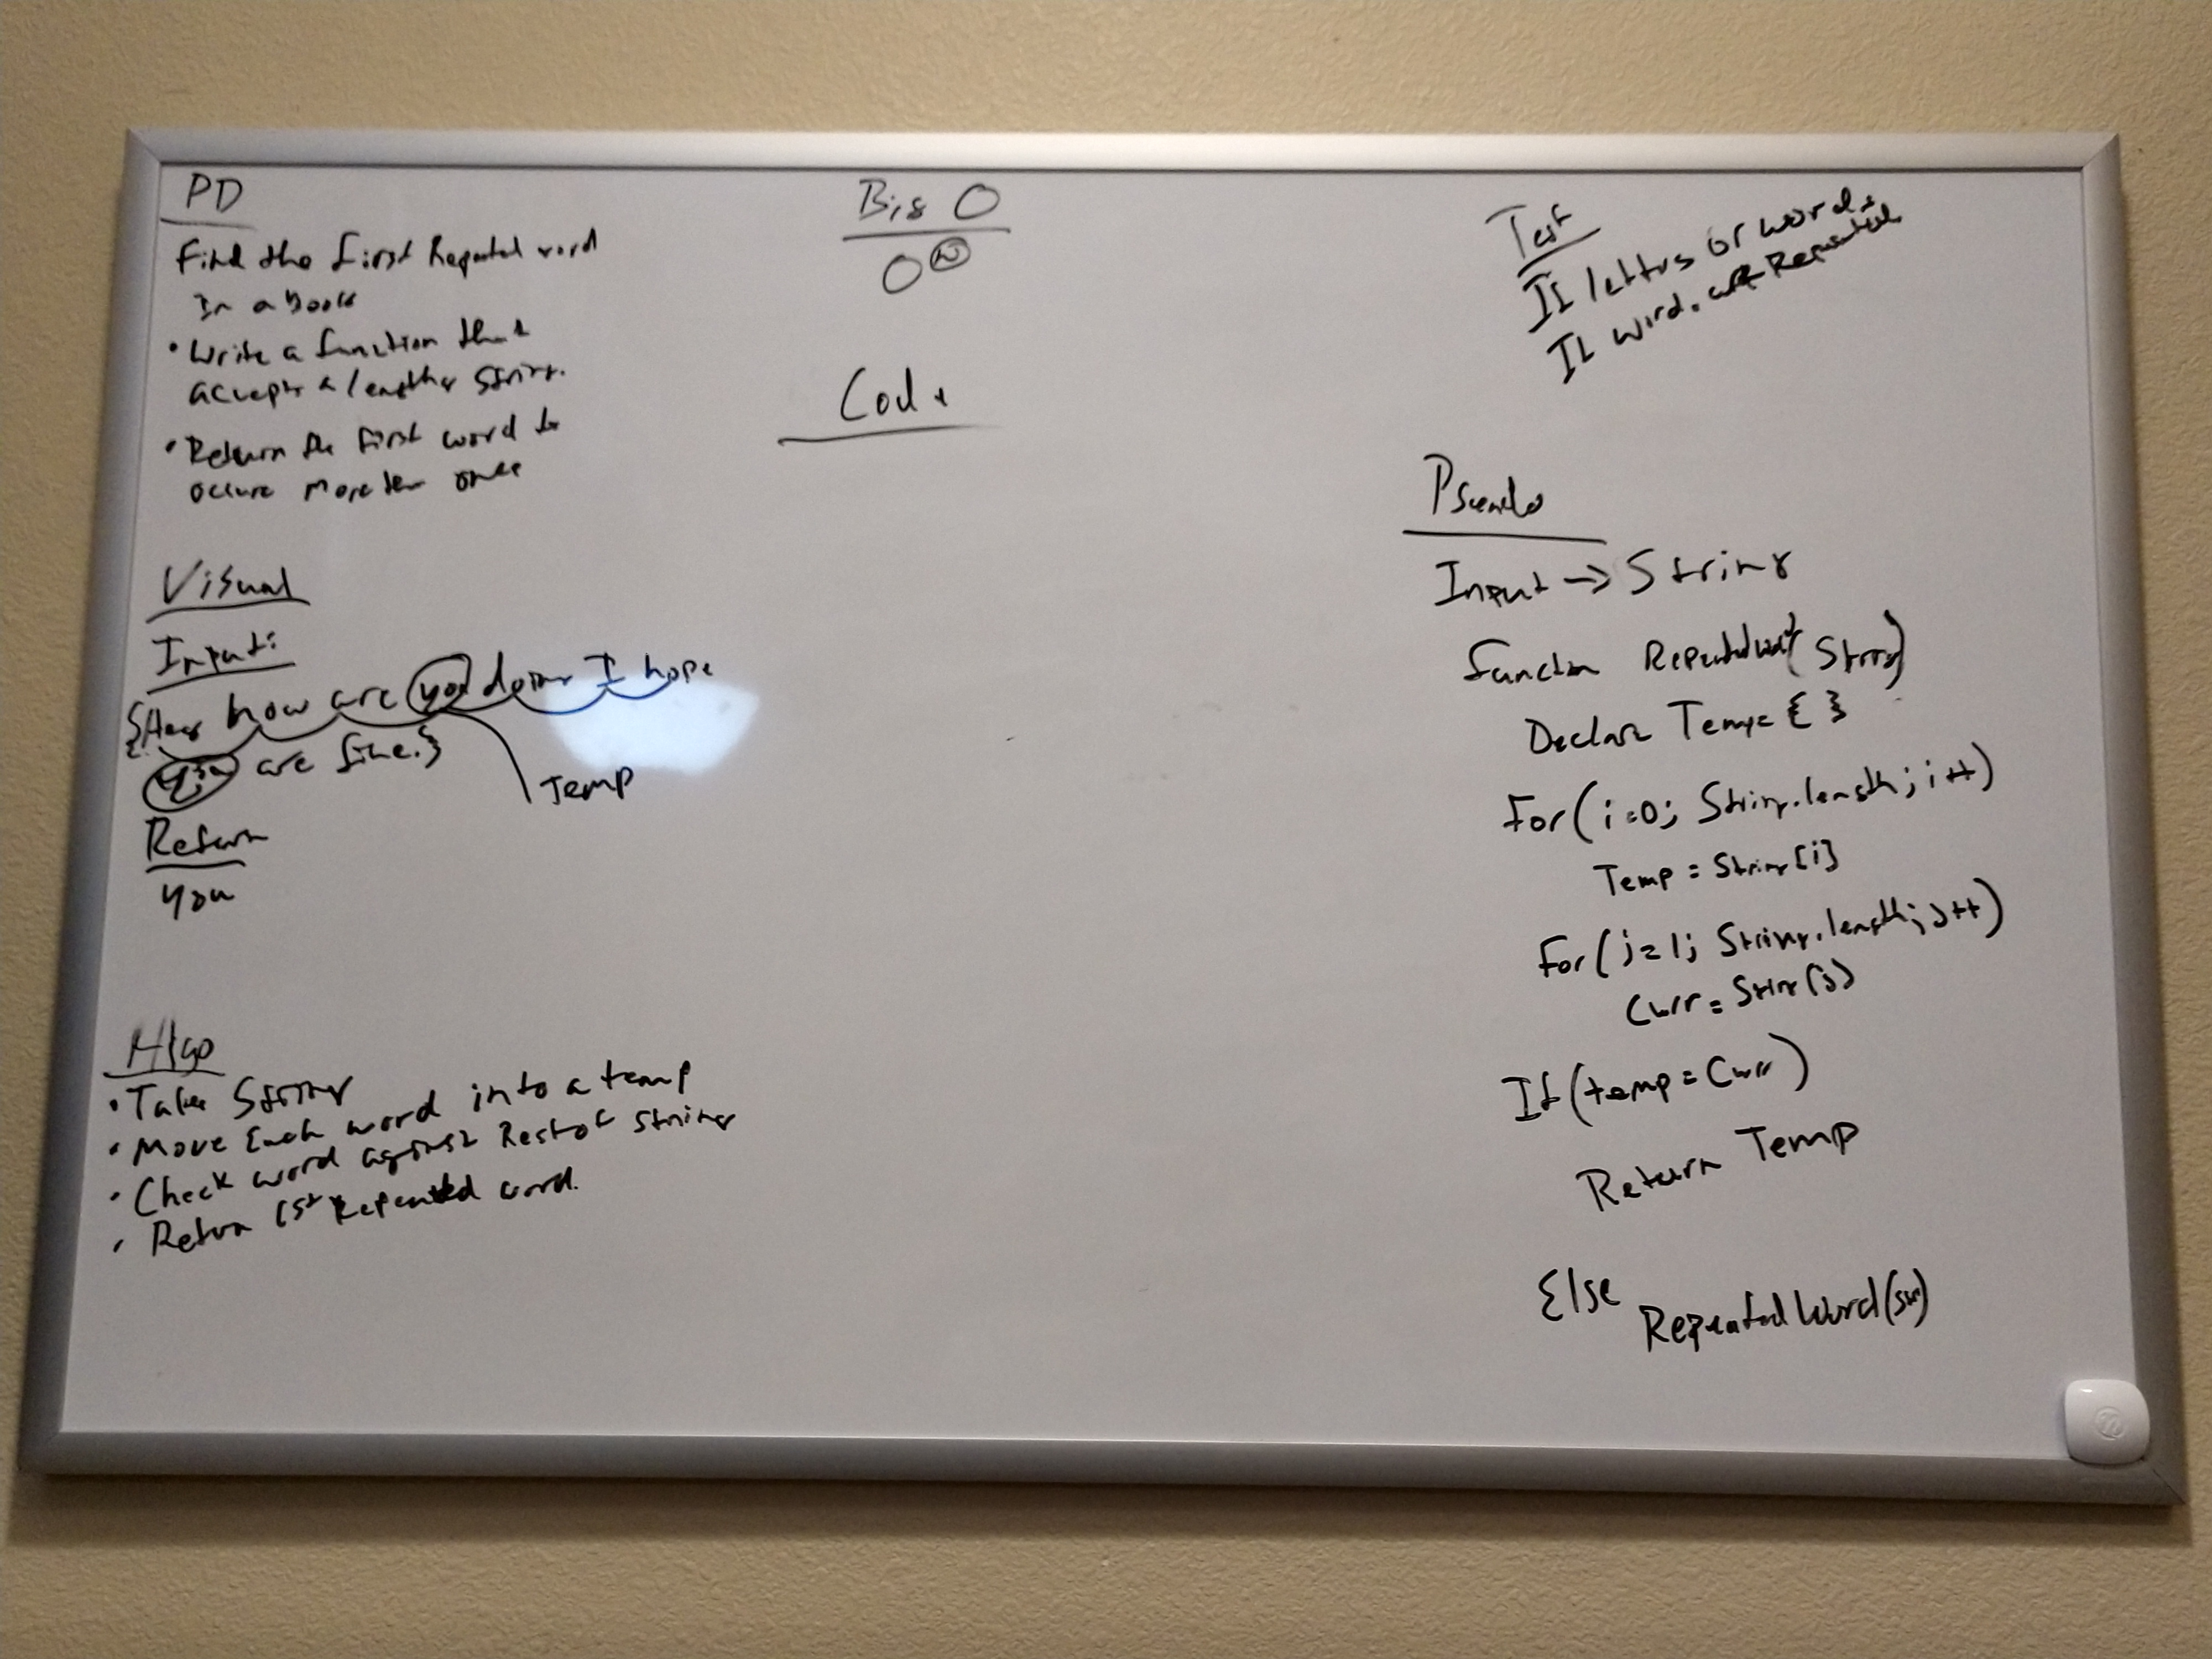 PD
Find the first Repeated word
In a book
• Write a function that
accepts a lengthy string.
• Return the first word to
occure more then once
Visual
Input:
{Hey how are you doing I hope
you are fine.}
Temp
Return
you
Algo
• Take String
• Move Each word into a temp
• Check word against Rest of string
• Return 1st Repeated word.
Big O
O(N)
Code
Test
If letters or words
If words are Repeated
Pseudo
Input → String
Function RepeatedWord(String)
Declare Temp = { }
For(i=0; String.length; i++)
Temp = String[i]
For(j=1; String.length; j++)
Curr = String[j]
If(temp = Curr)
Return Temp
Else
RepeatedWord(str)